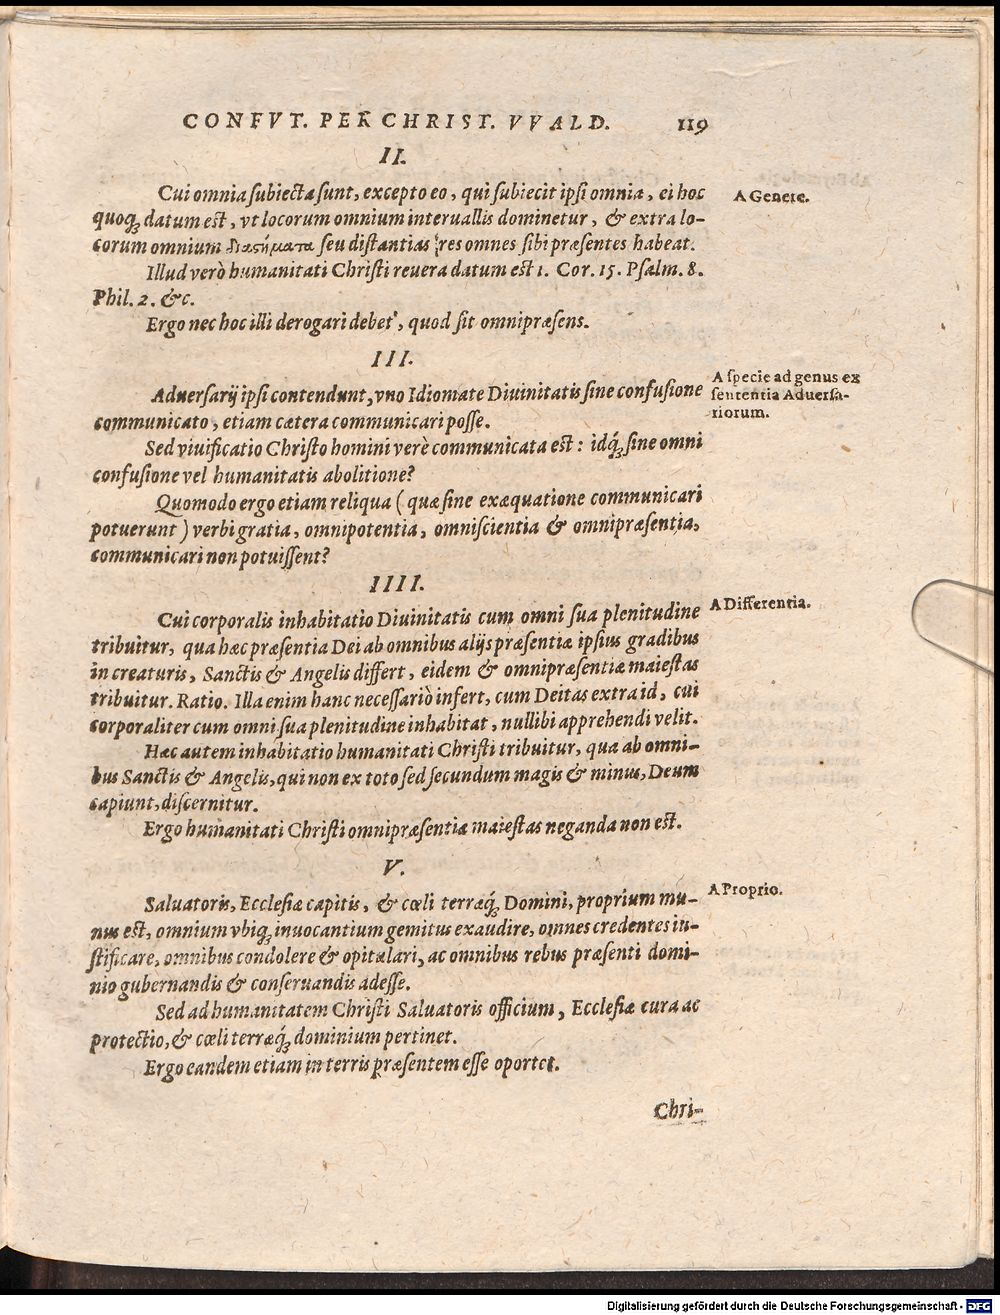 CONFVT. PER CHRIST. VVALD. 119
II.
Cui omnia ſubiecta ſunt, excepto eo, qui ſubiecit ipſi omnia, ei hoc
A Genere.
quoq; datum eſt, vt locorum omnium interuallis dominetur, & extra lo-
corum omnium διαςήματα ſeu diſtantias res omnes ſibi præſentes habeat.
Illud verò humanitati Chriſti reuera datum eſt 1. Cor. 15. Pſalm. 8.
Phil. 2. &c.
Ergo nec hoc illi derogari debet, quod ſit omnipræſens.
III.
Aduerſarij ipſi contendunt, vno Idiomate Diuinitatis ſine confuſione
A ſpecie ad genus ex
ſententia Aduerſa-
riorum.
communicato, etiam cætera communicari poſſe.
Sed viuificatio Chriſto homini verè communicata eſt: idq́; ſine omni
confuſione vel humanitatis abolitione?
Quomodo ergo etiam reliqua (quæ ſine exæquatione communicari
potuerunt) verbi gratia, omnipotentia, omniſcientia & omnipræſentia,
communicari non potuiſſent?
IIII.
Cui corporalis inhabitatio Diuinitatis cum omni ſua plenitudine
A Differentia.
tribuitur, qua hæc præſentia Dei ab omnibus alijs præſentiæ ipſius gradibus
in creaturis, Sanctis & Angelis differt, eidem & omnipræſentiæ maieſtas
tribuitur. Ratio. Illa enim hanc neceſſariò infert, cum Deitas extra id, cui
corporaliter cum omni ſua plenitudine inhabitat, nullibi apprehendi velit.
Hæc autem inhabitatio humanitati Chriſti tribuitur, qua ab omni-
bus Sanctis & Angelis, qui non ex toto ſed ſecundum magis & minus, Deum
capiunt, diſcernitur.
Ergo humanitati Chriſti omnipræſentiæ maieſtas neganda non eſt.
V.
Saluatoris, Eccleſiæ capitis, & cœli terræq́; Domini, proprium mu-
A Proprio.
nus eſt, omnium vbiq; inuocantium gemitus exaudire, omnes credentes iu-
ſtificare, omnibus condolere & opitulari, ac omnibus rebus præſenti domi-
nio gubernandis & conſeruandis adeſſe.
Sed ad humanitatem Chriſti Saluatoris officium, Eccleſiæ cura ac
protectio, & cœli terræq́; dominium pertinet.
Ergo eandem etiam in terris præſentem eſſe oportet.
Chri-
Digitalisierung gefördert durch die Deutsche Forschungsgemeinschaft - DFG